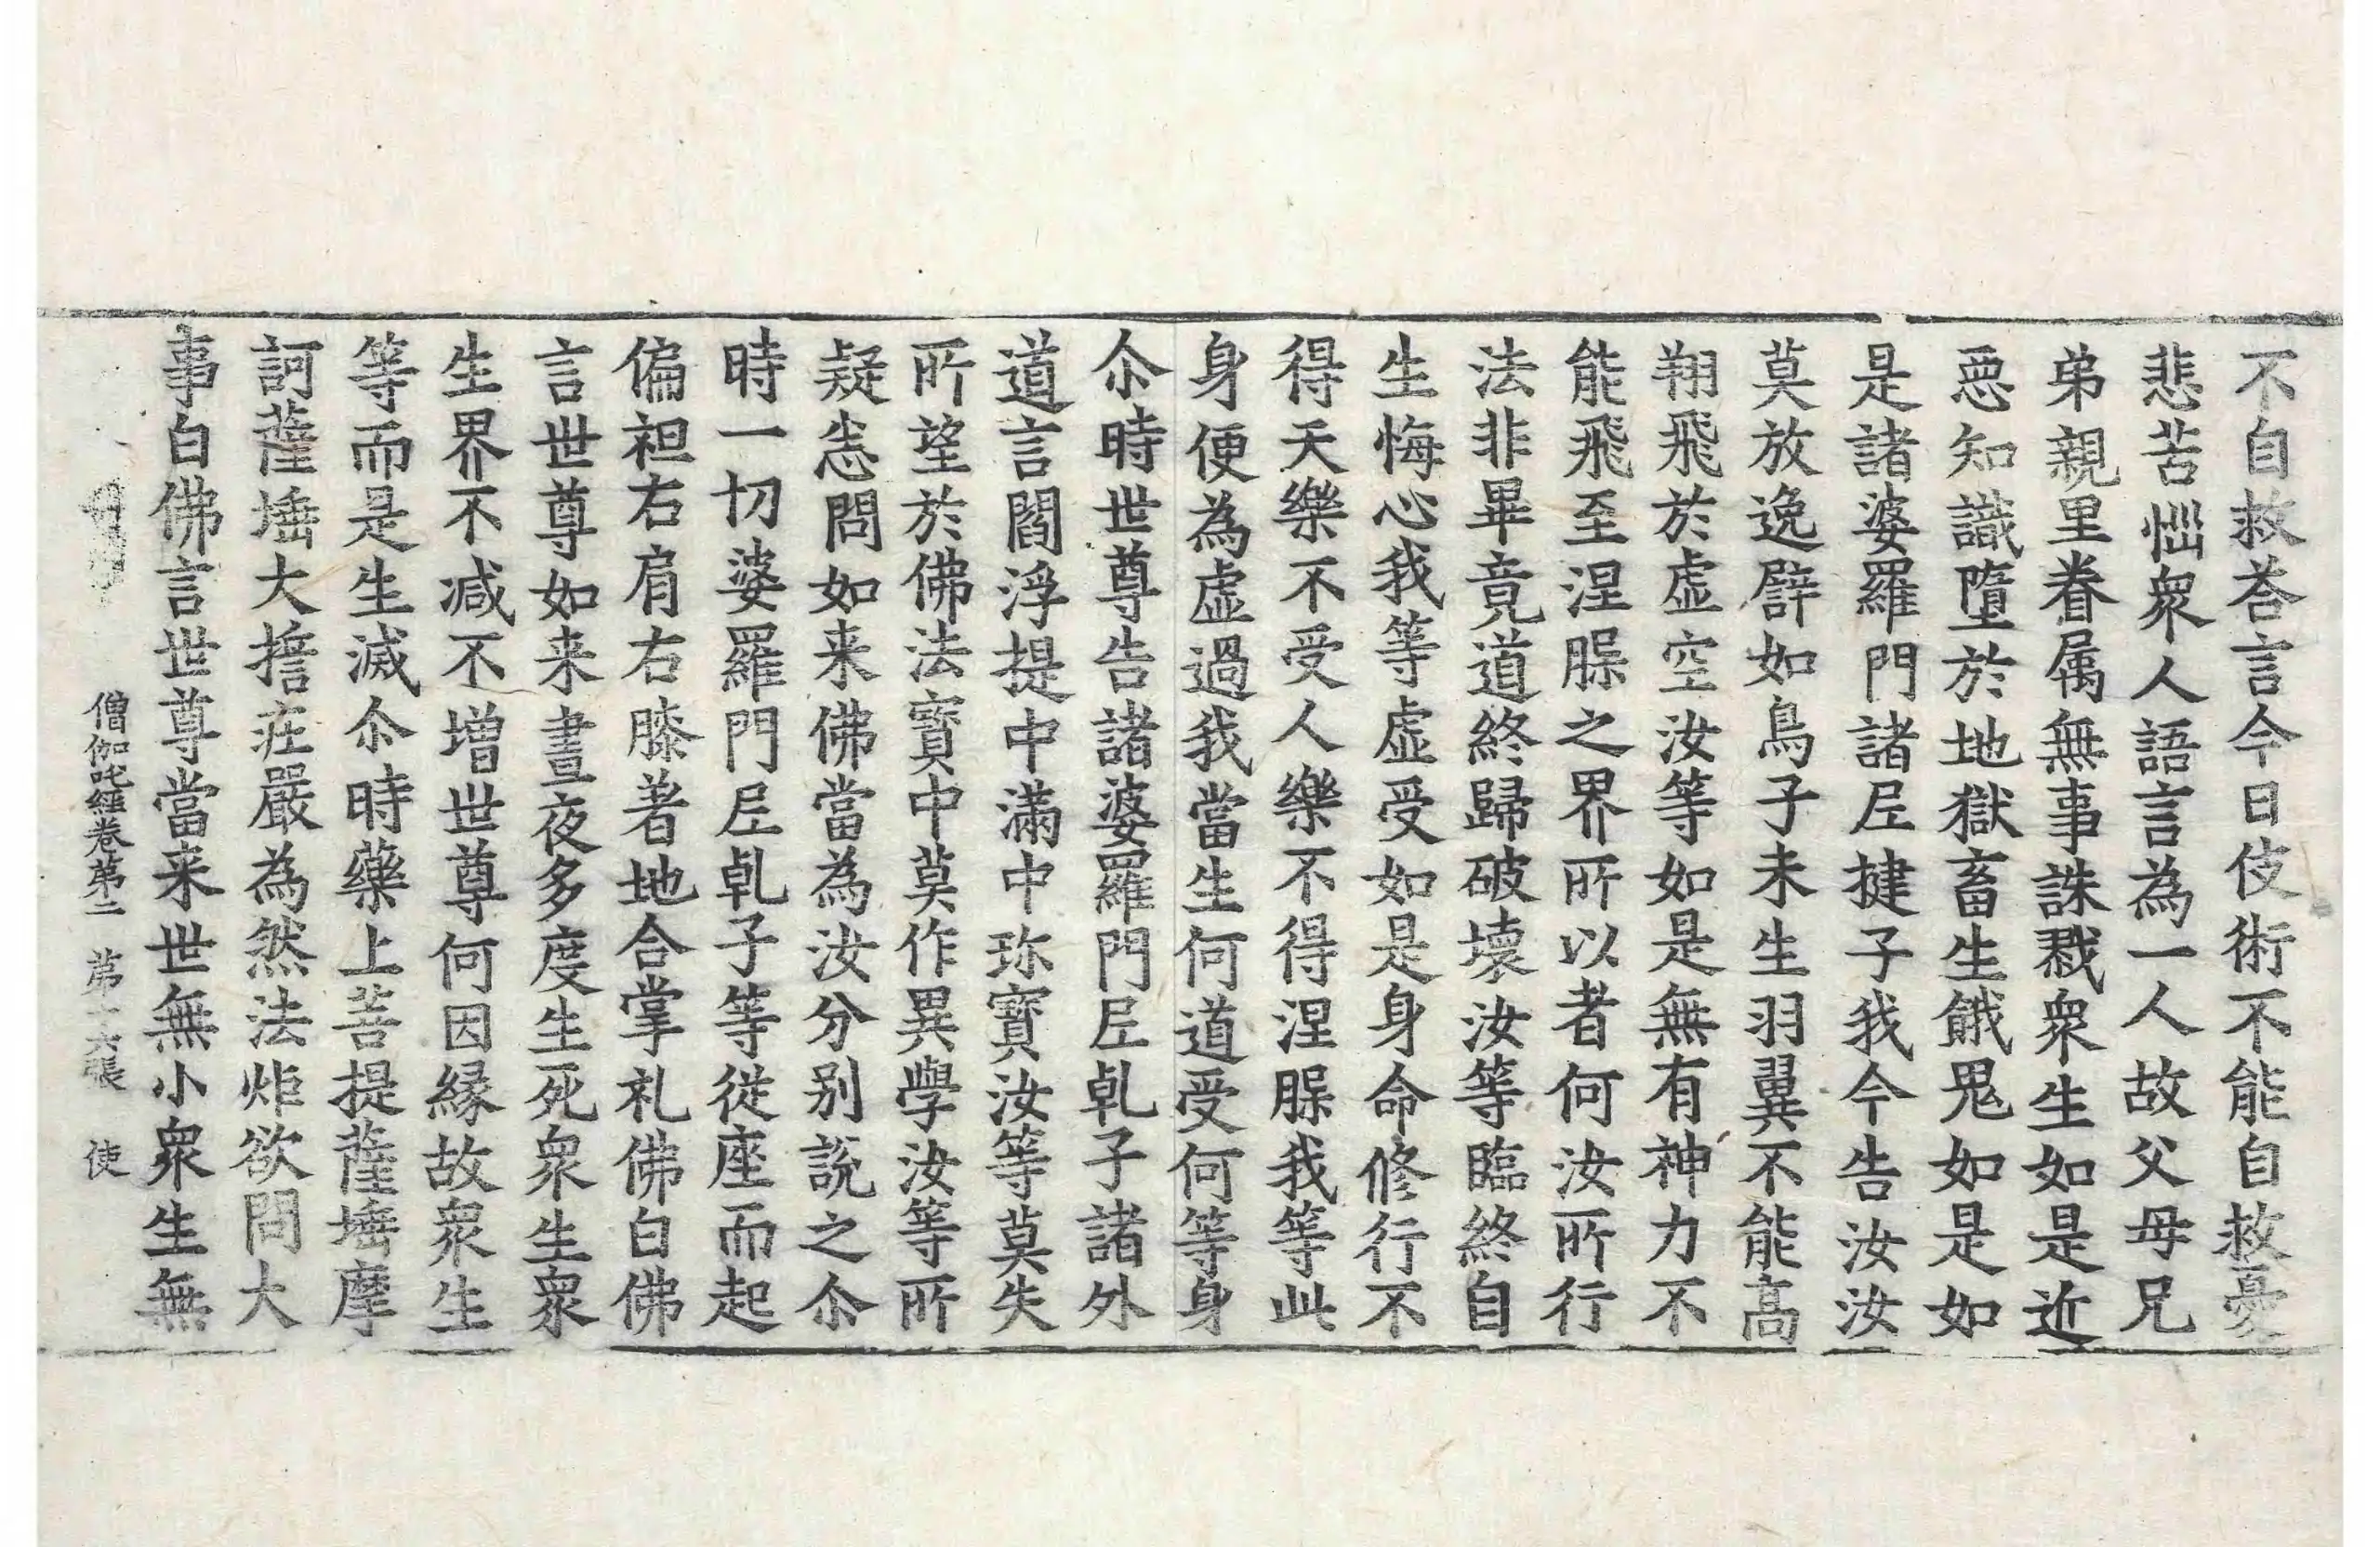 不自救荅言今日伎術不能自救憂
悲苦惱衆人語言為一人故父母兄
弟親里眷属無事誅戮衆生如是近
惡知識墮於地獄畜生餓鬼如是如
是諸婆羅門諸𡰱揵子我今告汝汝
莫放逸譬如鳥子未生羽翼不能高
翔飛於虛空汝等如是無有神力不
能飛至涅槃之界所以者何汝所行
法非畢竟道終歸破壞汝等臨終自
生悔心我等虛受如是身命修行不
得天樂不受人樂不得涅槃我等此
身便為虛過我當生何道受何等身
尒時世尊告諸婆羅門𡰱乹子諸外
道言閻浮提中滿中珎寶汝等莫失
所望於佛法寶中莫作異學汝等所
疑悉問如来佛當為汝分別說之尒
時一切婆羅門𡰱乹子等從座而起
偏袒右肩右膝著地合掌礼佛白佛
言世尊如来晝夜多度生死衆生衆
生界不減不增世尊何因緣故衆生
等而是生滅尒時藥上菩提薩埵摩
訶薩埵大誓荘嚴為然法炬欲問大
事白佛言世尊當来世無小衆生無
僧伽吒經卷第二 第十六張 使